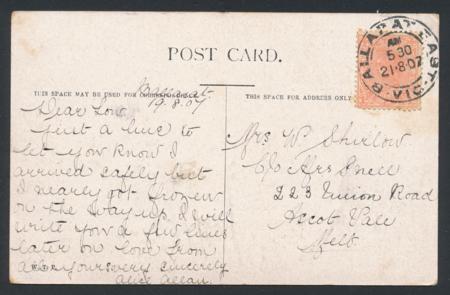 POST CARD.
THIS SPACE MAY BE USED FOR
THIS SPACE FOR ADDRESS ONLY
BALLARAT EAST. VIC
AM
5 30
21·8·07
Ballarat
19.8.07
Dear Lou
just a line to
let you know I
arrived safely but
I nearly got frozen
on the way up. I will
write you a few lines
later on love from
all yours very sincerely
Alice Allan.
Mrs W. Shirlow
C/o Mrs Snell
223 Union Road
Ascot Vale
Melb